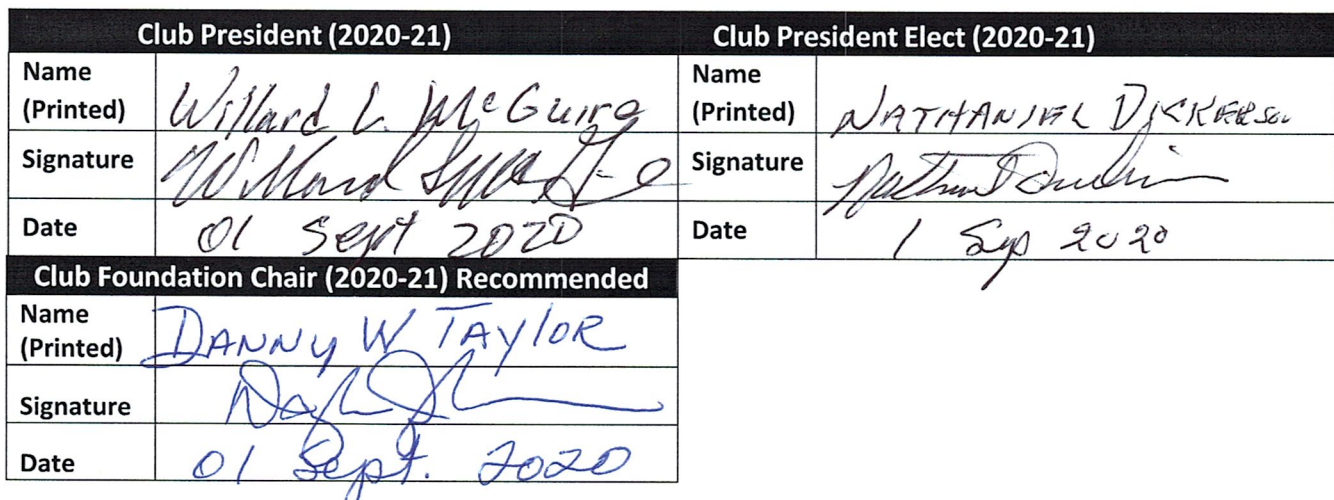 Club President (2020-21)
Name (Printed) Willard L. McGuire
Signature
Date 01 Sept 2020
Club President Elect (2020-21)
Name (Printed) NATHANIEL DICKERSON
Signature
Date 1 Sep 2020
Club Foundation Chair (2020-21) Recommended
Name (Printed) DANNY W TAYLOR
Signature
Date 01 Sept. 2020